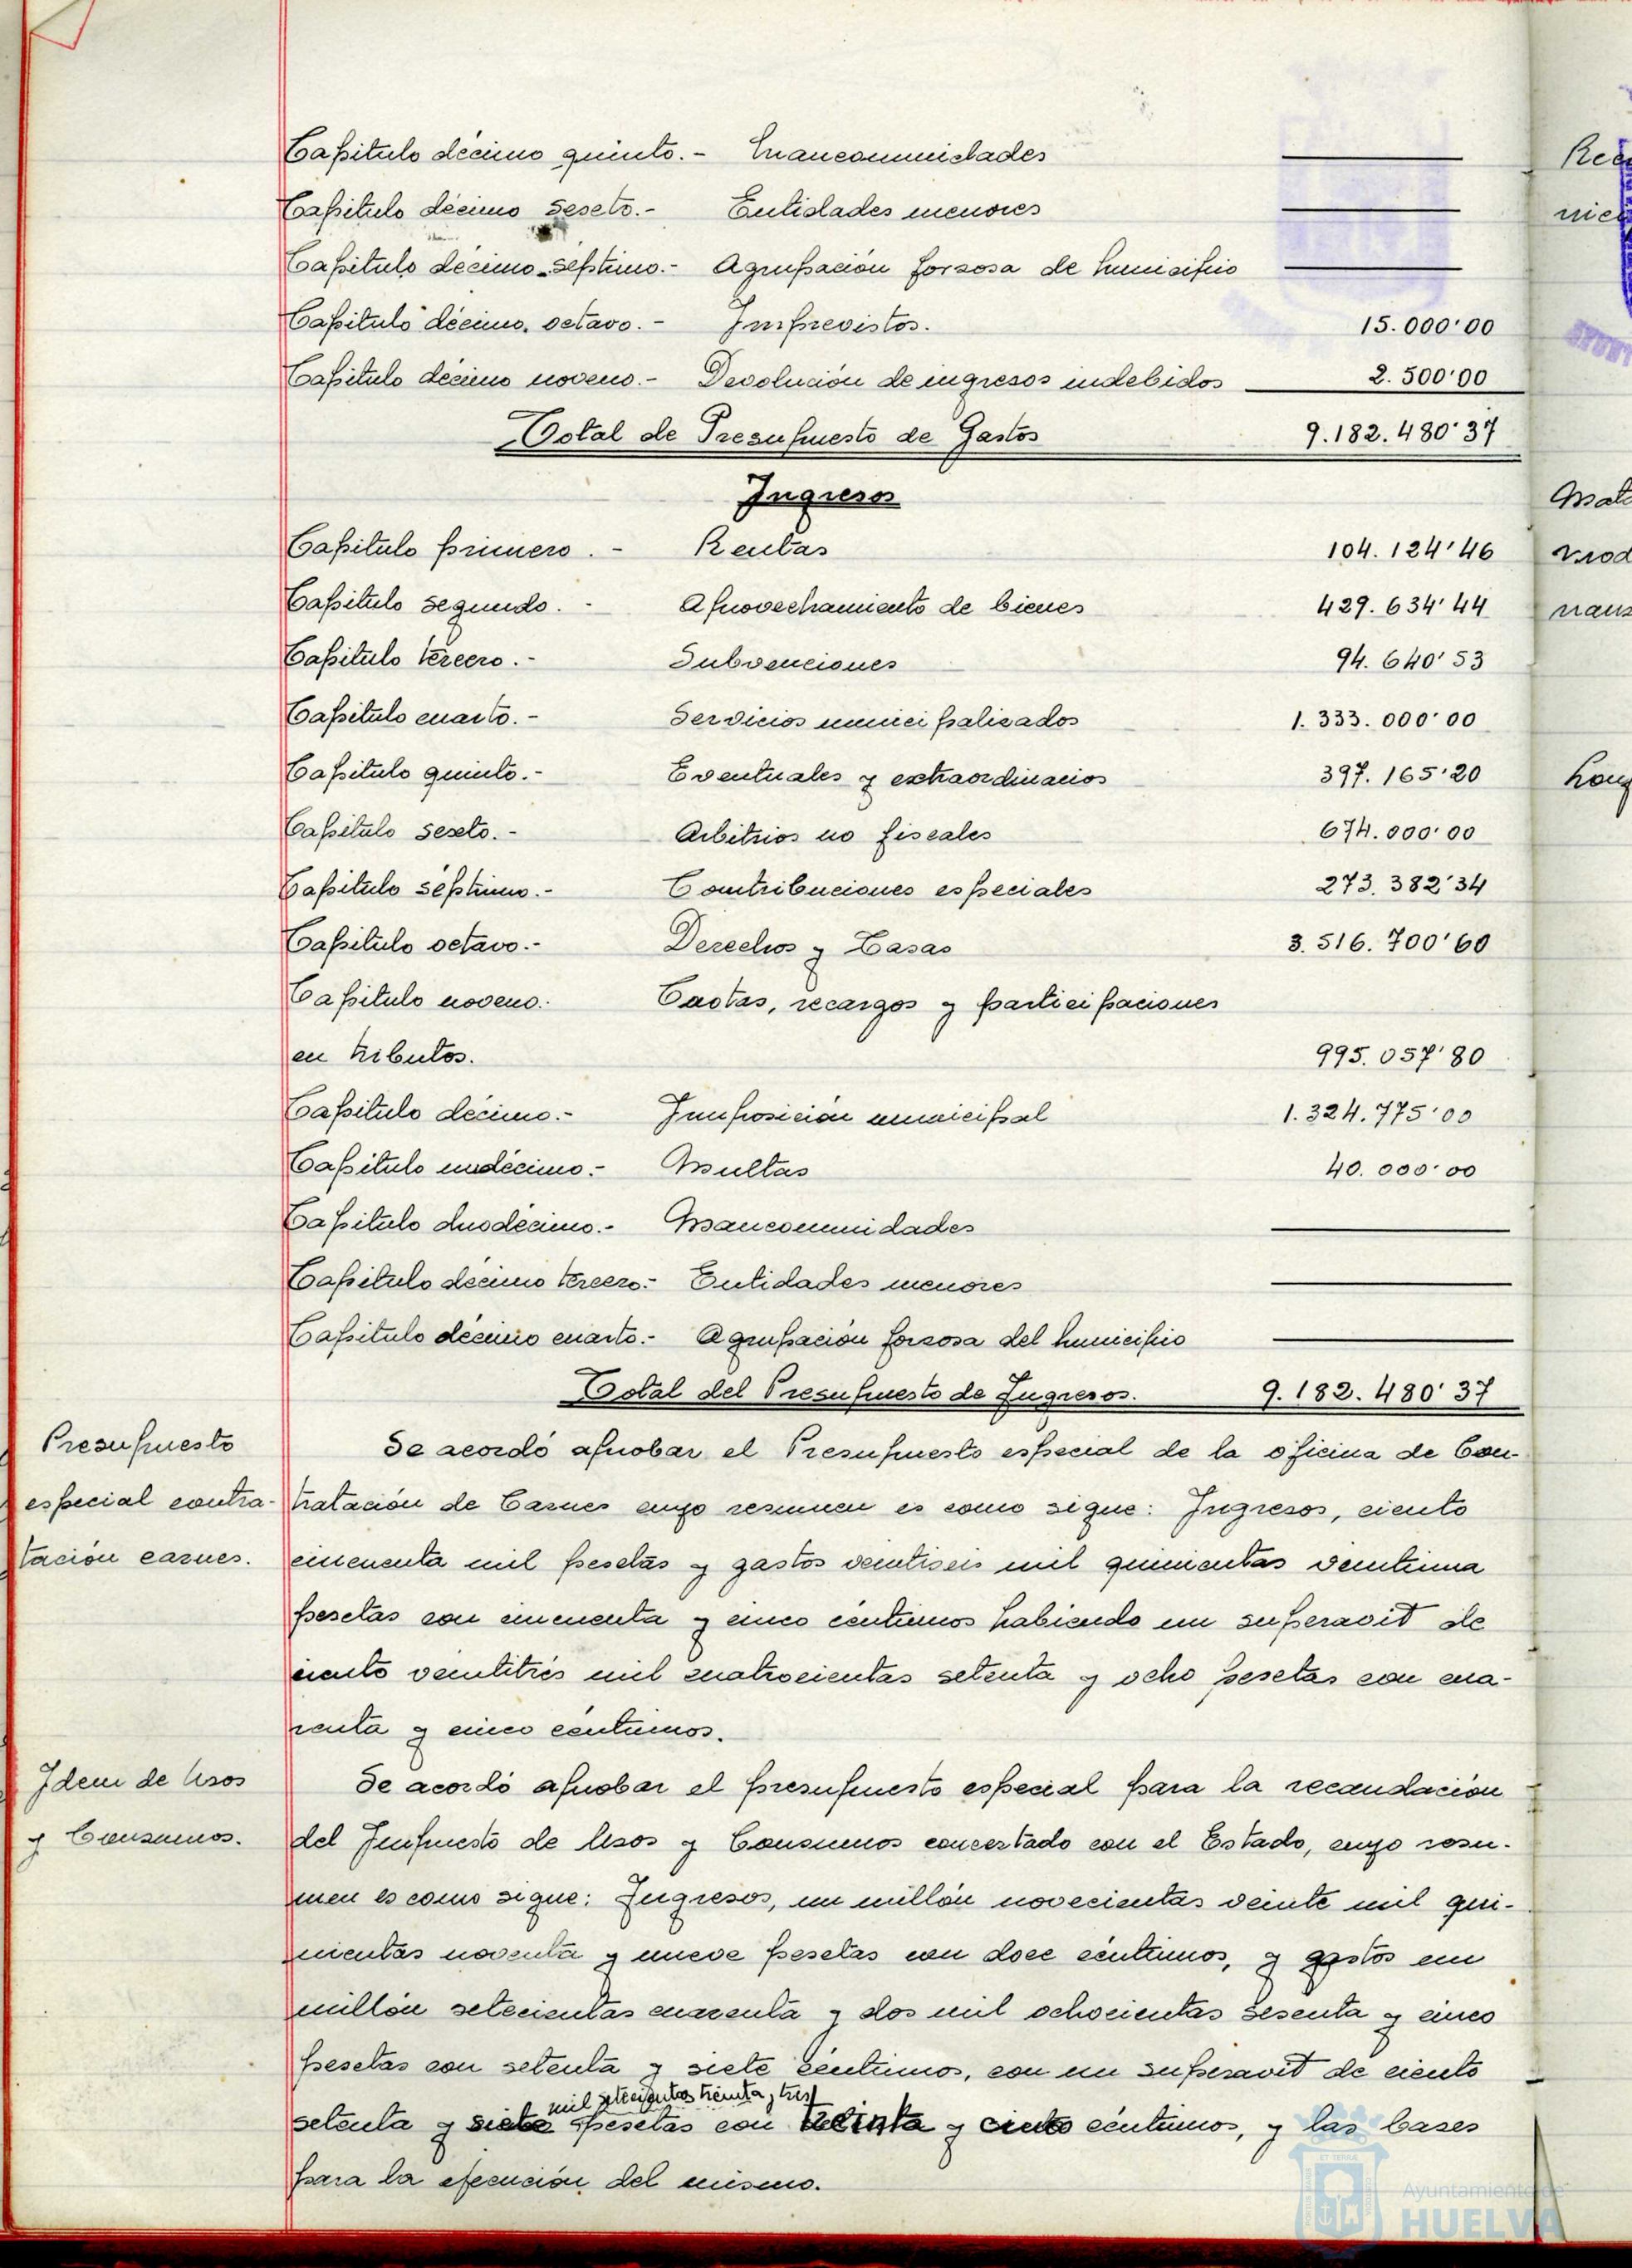 Capitulo décimo quinto.- Mancomunidades
Capitulo décimo sesto.- Entidades menores
Capitulo décimo séptimo.- Agrupación forzosa de Municipio
Capitulo décimo octavo.- Imprevistos. 15.000'00
Capitulo décimo noveno.- Devolución de ingresos indebidos 2.500'00
Total de Presupuesto de Gastos 9.182.480'37
Ingresos
Capitulo primero.- Rentas 104.124'46
Capitulo segundo.- Aprovechamiento de bienes 429.634'44
Capitulo tercero.- Subvenciones 94.640'53
Capitulo cuarto.- Servicios municipalizados 1.333.000'00
Capitulo quinto.- Eventuales y extraordinarios 397.165'20
Capitulo sexto.- Arbitrios no fiscales 674.000'00
Capitulo séptimo.- Contribuciones especiales 273.382'34
Capitulo octavo.- Derechos y Tasas 3.516.700'60
Capitulo noveno.- Cuotas, recargos y participaciones
en tributos. 995.057'80
Capitulo décimo.- Imposición municipal 1.324.775'00
Capitulo undécimo.- Multas 40.000'00
Capitulo duodécimo.- Mancomunidades
Capitulo décimo tercero.- Entidades menores
Capitulo décimo cuarto.- Agrupación forzosa del Municipio
Total del Presupuesto de Ingresos. 9.182.480'37
Presupuesto
especial contra-
tación carnes.
Se acordó aprobar el Presupuesto especial de la oficina de Con-
tratación de Carnes cuyo resumen es como sigue: Ingresos, ciento
cincuenta mil pesetas y gastos veintiseis mil quinientas veintiuna
pesetas con cincuenta y cinco céntimos habiendo un superavit de
ciento veintitrés mil cuatrocientas setenta y ocho pesetas con cua-
renta y cinco céntimos.
Idem de Usos
y Consumos.
Se acordó aprobar el presupuesto especial para la recaudación
del Impuesto de Usos y Consumos concertado con el Estado, cuyo resu-
men es como sigue: Ingresos, un millón novecientas veinte mil qui-
nientas noventa y nueve pesetas con doce céntimos, y gastos un
millón setecientas cuarenta y dos mil ochocientas sesenta y cinco
pesetas con setenta y siete céntimos, con un superavit de ciento
mil setecientas treinta y tres
setenta y siete pesetas con treinta y cinco céntimos, y las bases
para la ejecución del mismo.
Ayuntamiento de
HUELVA